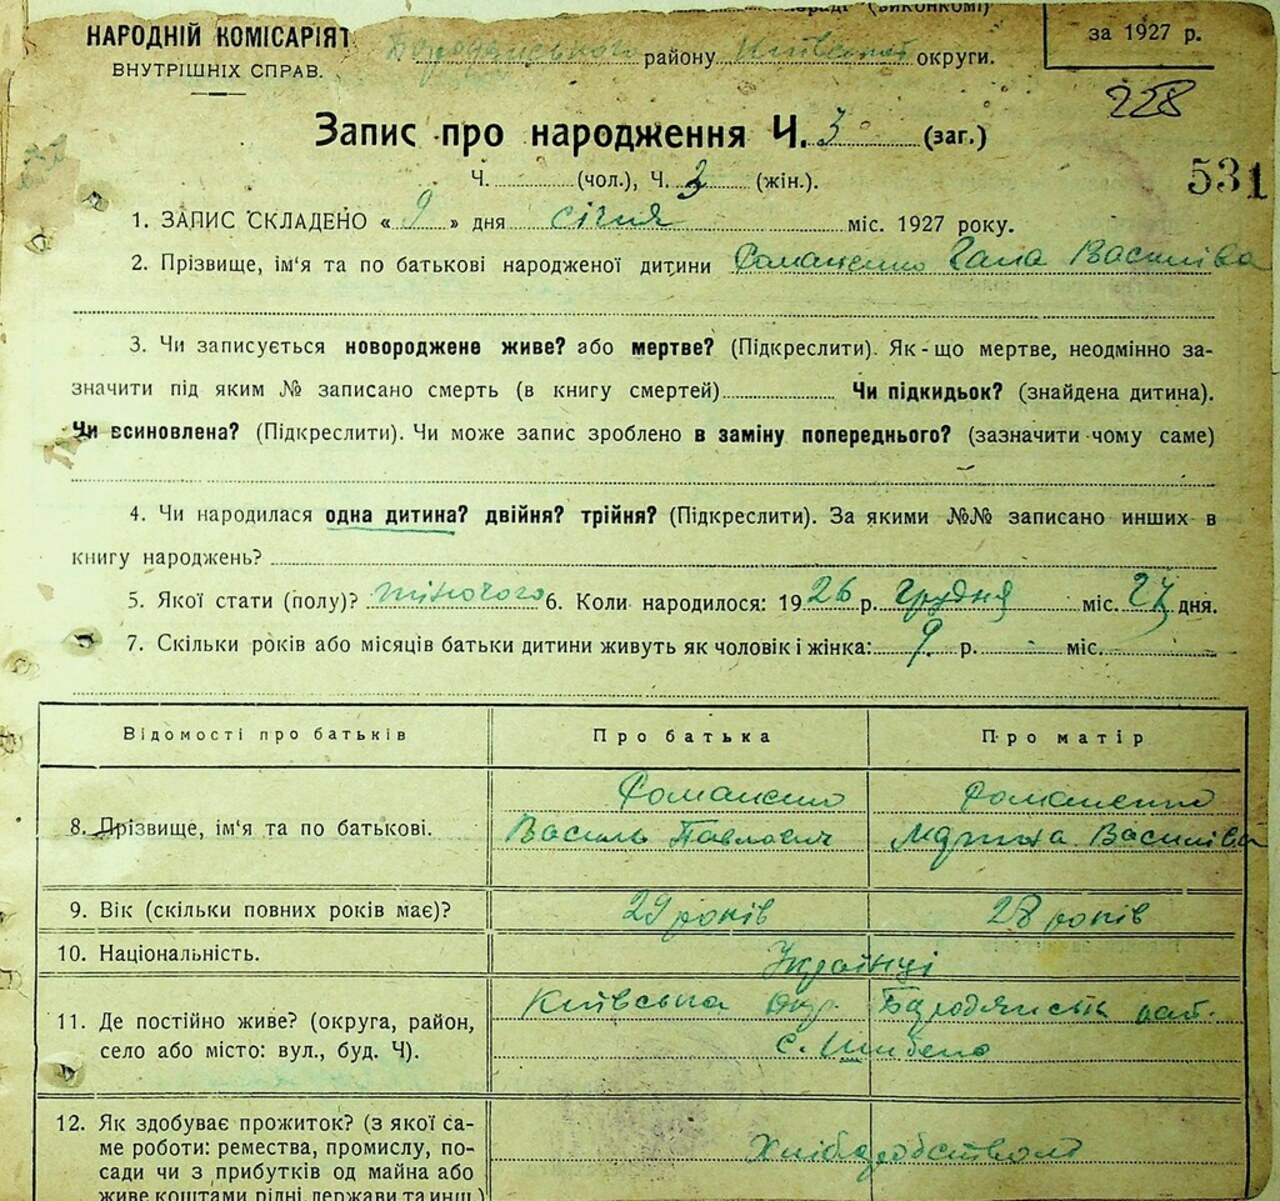 (виконкомі)
НАРОДНІЙ КОМІСАРІЯТ
ВНУТРІШНІХ СПРАВ.
Бородянського району Київської округи.
за 1927 р.
228
Запис про народження Ч. 3 (заг.)
Ч. (чол.), Ч. 3 (жін.).
531
1. ЗАПИС СКЛАДЕНО « 9 » дня січня міс. 1927 року.
2. Прізвище, ім'я та по батькові народженої дитини Романенко Гала Василіва
3. Чи записується новороджене живе? або мертве? (Підкреслити). Як-що мертве, неодмінно за-
значити під яким № записано смерть (в книгу смертей) Чи підкидьок? (знайдена дитина).
Чи всиновлена? (Підкреслити). Чи може запис зроблено в заміну попереднього? (зазначити чому саме)
4. Чи народилася одна дитина? двійня? трійня? (Підкреслити). За якими №№ записано инших в
книгу народжень?
5. Якої стати (полу)? жіночого 6. Коли народилося: 1926 р. грудня міс. 27 дня.
7. Скільки років або місяців батьки дитини живуть як чоловік і жінка: 9 р. міс.
Відомості про батьків Про батька Про матір
Романенко Романенко
8. Прізвище, ім'я та по батькові. Василь Павлович Василіва
9. Вік (скільки повних років має)? 29 років 28 років
10. Національність. Українці
11. Де постійно живе? (округа, район, Київська окр. Бородянськ
село або місто: вул., буд. Ч). с. Шибено
12. Як здобуває прожиток? (з якої са-
ме роботи: ремества, промислу, по- Хліборобством
сади чи з прибутків од майна або
живе коштами рідні, держави та инш.)